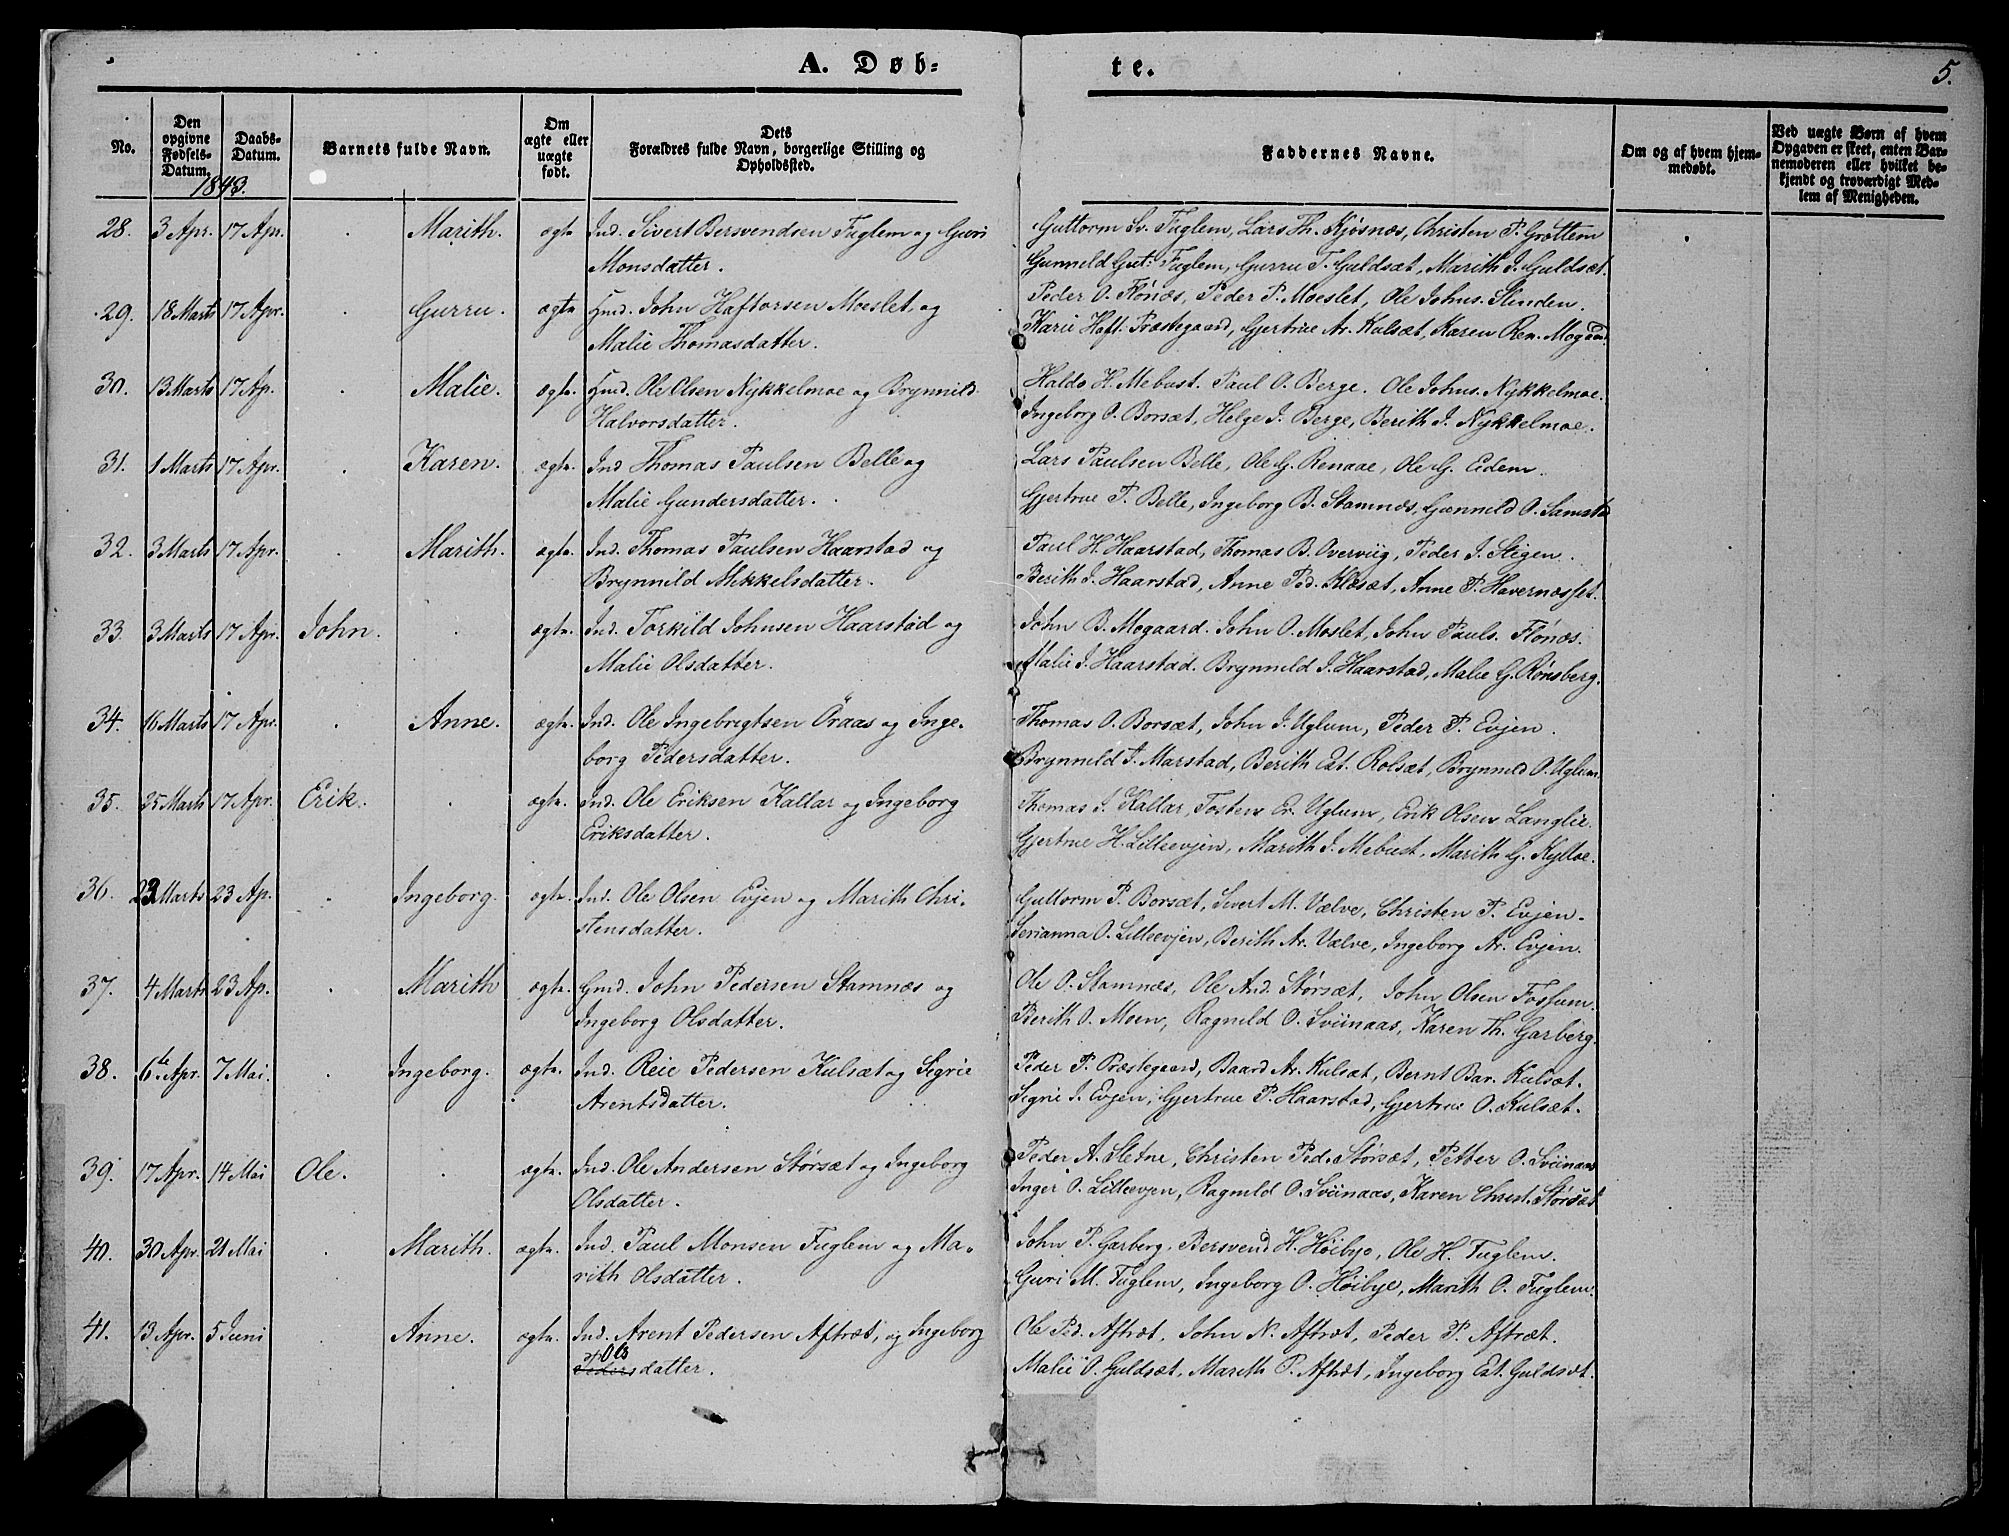 A. Døb-
te.
5.
No.
Den opgivne Fødsels-Datum.
Daabs-Datum.
Barnets fulde Navn.
Om ægte eller uægte født.
Dets Forældres fulde Navn, borgerlige Stilling og Opholdssted.
Faddernes Navne.
Om og af hvem hjem-medøbt.
Ved uægte Børn af hvem Opgaven er skeet, enten Bar-nemoderen eller hvilket be-kjendt og troværdigt Med-lem af Menigheden.
1843.
28. 3 Apr. 17 Apr. Marith. ægte Ind. Sivert Bersvendsen Fuglem og Guri Guttorm Sv. Fuglem, Lars Th. Kjøsnæs, Christen P. Grøttem
Monsdatter. Gunneld Gut. Fuglem, Gurru T. Guldsæt, Marith J. Guldsæt.
29. 18 Marts 17 Apr. Gurru. ægte Hmd. John Haftorsen Moeslet og Peder O. Flönæs, Peder P. Moeslet, Ole Johns. Slinden.
Malie Thomasdatter. Karie Haft. Præstegaard, Gjertrue Ar. Kulsæt, Karen Ren. Mogaard
30. 13 Marts 17 Ap. Malie. ægte. Hmd. Ole Olsen Nykkelmoe og Brynnild Haldo H. Mebust. Paul O. Berge. Ole Johns. Nykkelmoe.
Halvorsdatter. Ingeborg O. Borsæt, Helge J. Berge, Berith J. Nykkelmoe.
31. 1 Marts 17 Apr. Karen. ægte. Ind Thomas Paulsen Belle og Lars Paulsen Belle, Ole G. Renaae, Ole G. Eidem.
Malie Gundersdatter. Gjertrue P. Belle, Ingeborg B. Stamnæs, Gunneld O. Samstad
32. 3 Marts 17 Apr. Marith. ægte. Ind. Thomas Paulsen Haarstad og Paul H. Haarstad, Thomas B. Overviig, Peder J. Stigen.
Brynnild Mikkelsdatter. Berith J. Haarstad, Anne Ped. Klæsæt, Anne P. Havernæsset.
33. 3 Marts 17 Apr. John. ægte. Ind. Torkild Johnsen Haarstad og John B. Mogaard. John O. Moslet, John Pauls. Flönæs.
Malie Olsdatter. Malie J. Haarstad. Brynneld J. Haarstad, Malie G. Rönsberg.
34. 16 Marts 17 Apr. Anne. ægte. Ind. Ole Ingebrigtsen Öraas og Inge- Thomas O. Borsæt, John J. Uglum, Peder P. Evjen.
borg Pedersdatter. Brynneld J. Marstad, Berith Est. Rolsæt, Brynneld O. Uglum
35. 25 Marts 17 Apr. Erik. ægte. Ind. Ole Eriksen Kallar og Ingeborg Thomas J. Kallar, Tosten Er. Uglum, Erik Olsen Langlie.
Eriksdatter. Gjertrue H. Lilleevjen, Marith J. Mebust, Marith G. Kylloe.
36. 23 Marts 23 Ap. Ingeborg. ægte. Ind. Ole Olsen Evjen og Marith Chri- Guttorm P. Borsæt, Sivert M. Vælve, Christen P. Evjen.
stensdatter. Serianna O. Lilleevjen, Berith Ar. Vælve, Ingeborg Ar. Evjen.
37. 4 Marts 23 Ap. Marith ægte. Gmd. John Pedersen Stamnæs og Ole O. Stamnæs, Ole And. Störsæt, John Olsen Fosfum.
Ingeborg Olsdatter. Berith O. Moen, Ragneld O. Sviinaas, Karen Th. Garberg.
38. 6te Apr. 7 Mai. Ingeborg. ægte. Ind. Reie Pedersen Kulsæt og Sigrie Peder P. Præstegaard, Baard Ar. Kulsæt, Bernt Bar. Kulsæt.
Arentsdatter. Sigrie J. Evjen, Gjertrue P. Haarstad, Gjertrue O. Kulsæt.
39. 17 Apr. 14 Mai Ole. ægte. Ind. Ole Andersen Störsæt og Ingeborg Peder A. Sletne, Christen Ped. Störsæt, Petter O. Sviinaas
Olsdatter. Inger O. Lilleevjen, Ragneld O. Sviinaas, Karen Christ. Störsæt
40. 30 Apr. 21 Mai Marith. ægte. Ind. Paul Monsen Fuglem og Ma- John P. Garberg, Bersvend H. Höibye, Ole H. Fuglem.
rith Olsdatter. Guri M. Fuglem, Ingeborg O. Höibye, Marith O. Fuglem.
41. 13 Apr. 5 Juni Anne. ægte. Ind. Arent Pedersen Aftræt, og Ingeborg Ole Ped. Aftræt, John N. Aftræt, Peder P. Aftræt.
Pedersdatter. Ols Malie O. Guldsæt, Marith P. Aftræt, Ingeborg Est. Guldsæt.